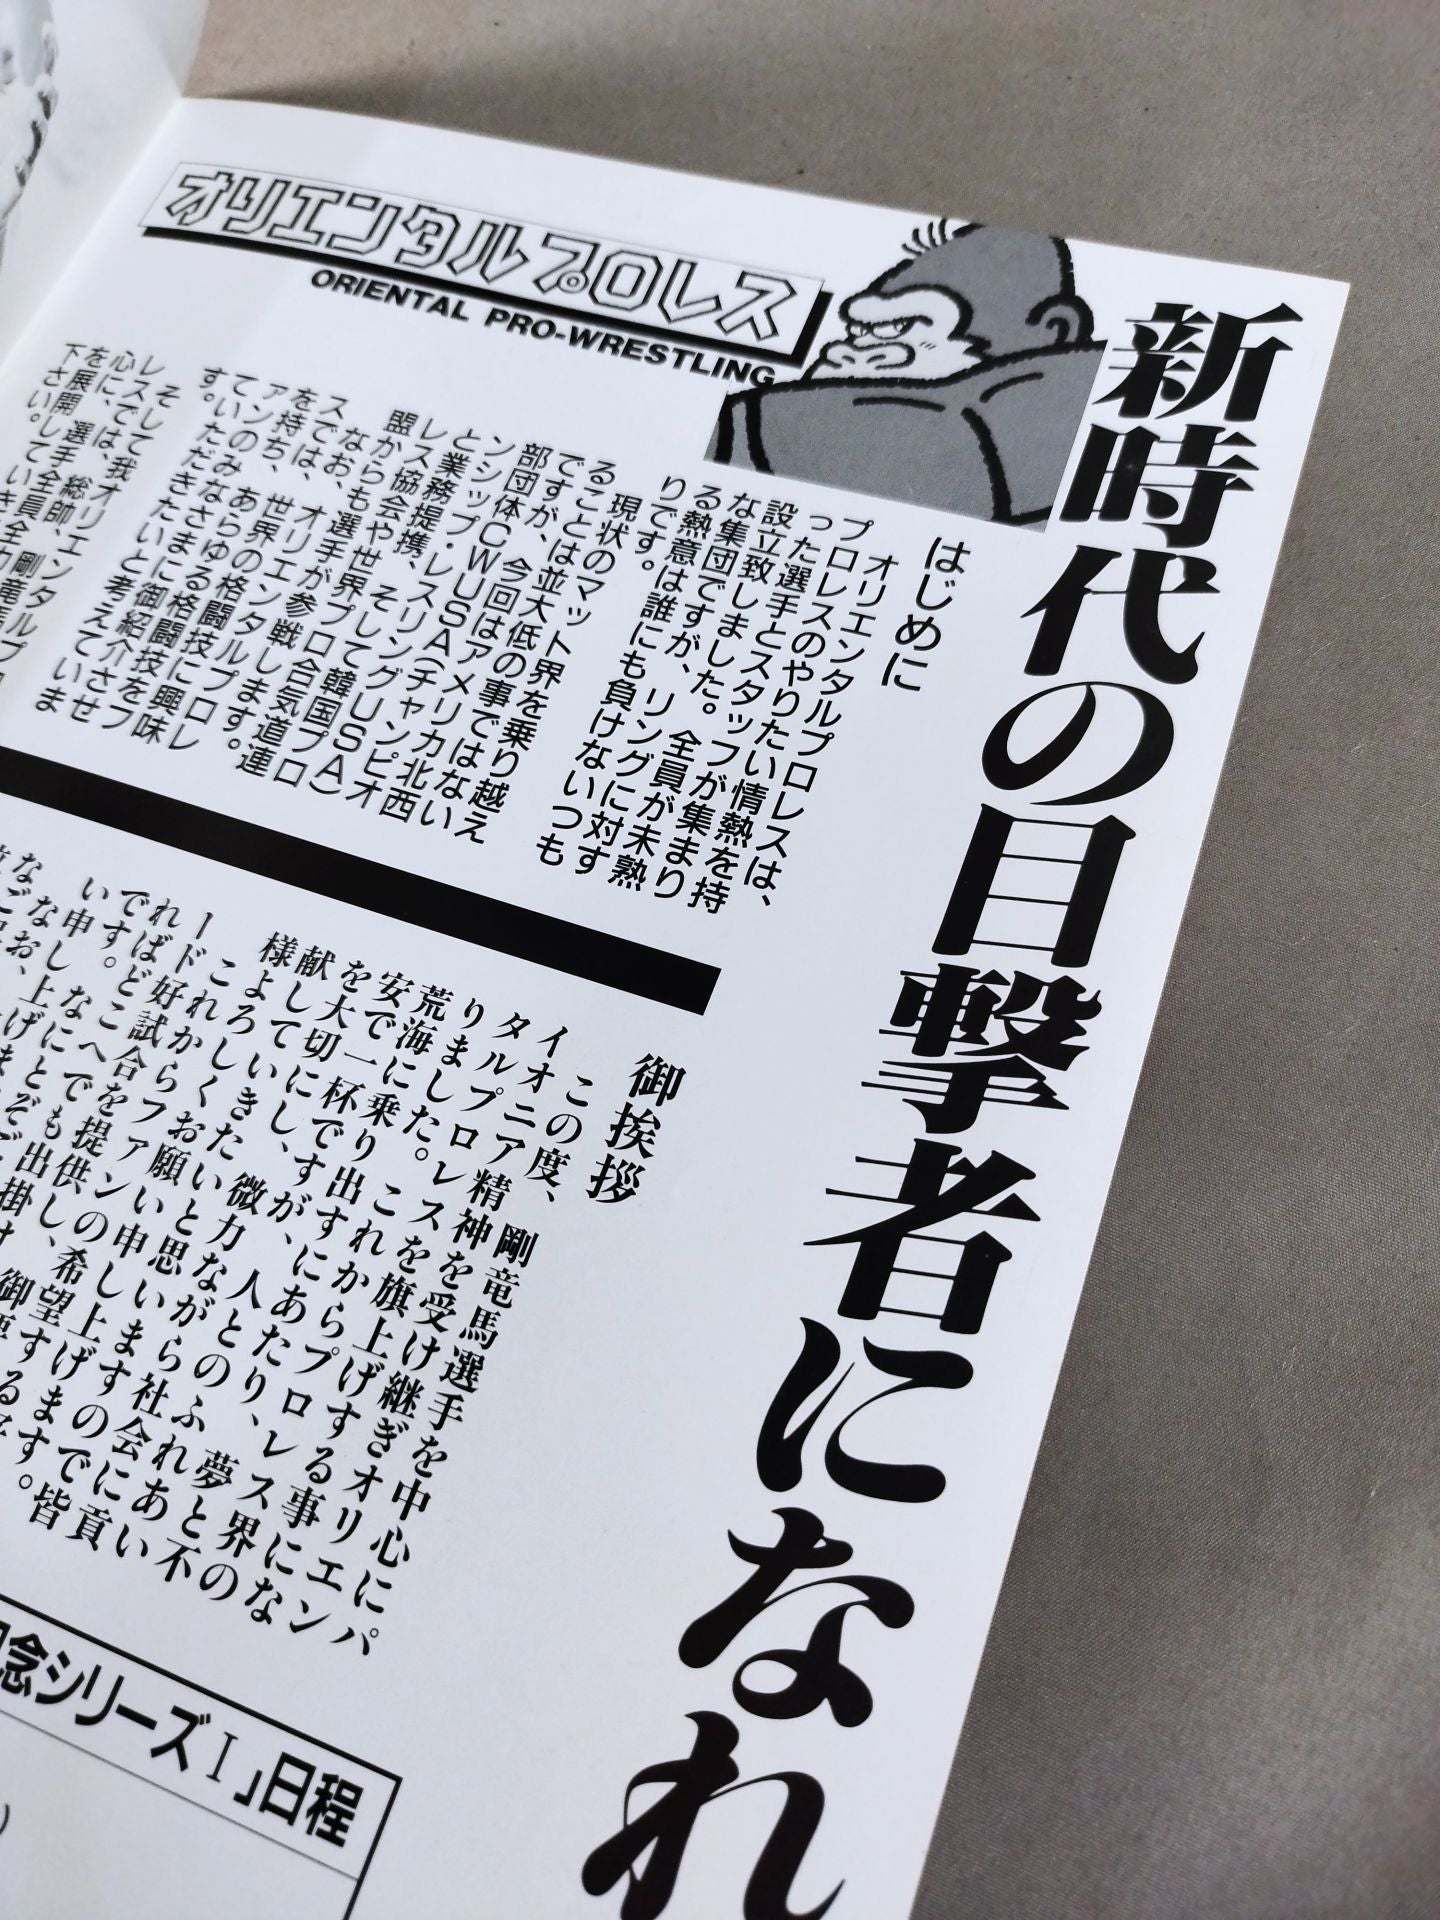 新時代の目撃者になれ
オリエンタルプロレス
ORIENTAL PRO-WRESTLING
はじめに
オリエンタルプロレスは、
プロレスのやりたい情熱を持
った選手とスタッフが集まり
設立致しました。全員が未熟
な集団ですが、リングに対す
る熱意は誰にも負けないつも
りです。
現状のマット界を乗り越え
ることは並大低の事ではない
ですが、今回はアメリカ北西
部団体CWUSA(チャンピオ
ンシップ・レスリングUSA)
と業務提携、そして韓国プロ
レス協会や世界プロ合気道連
盟からも選手が参戦します。
なお、オリエンタルプロレ
スでは、世界の格闘技に興味
を持ち、あらゆる格闘技をフ
ァンのみなさまに御紹介させ
ていただきたいと考えていま
す。
そして我オリエンタルプロ
レスでは、総帥、剛竜馬
心に、選手全員全力
を展開していき
下さい。
御挨拶
この度、剛竜馬選手を中心にパ
イオニア精神を受け継ぎオリエン
タルプロレスを旗上げする事にな
りました。これからプロレス界の
荒海に乗り出すにあたり、夢と不
安で一杯ですが、人とのふれあい
を大切にし、微力ながら社会に貢
献していきたいと思いますので皆
様よろしくお願い申し上げます。
これから試合ファンの希望する
カード好
ればどこへでも
です。
い申し上げま
なお、